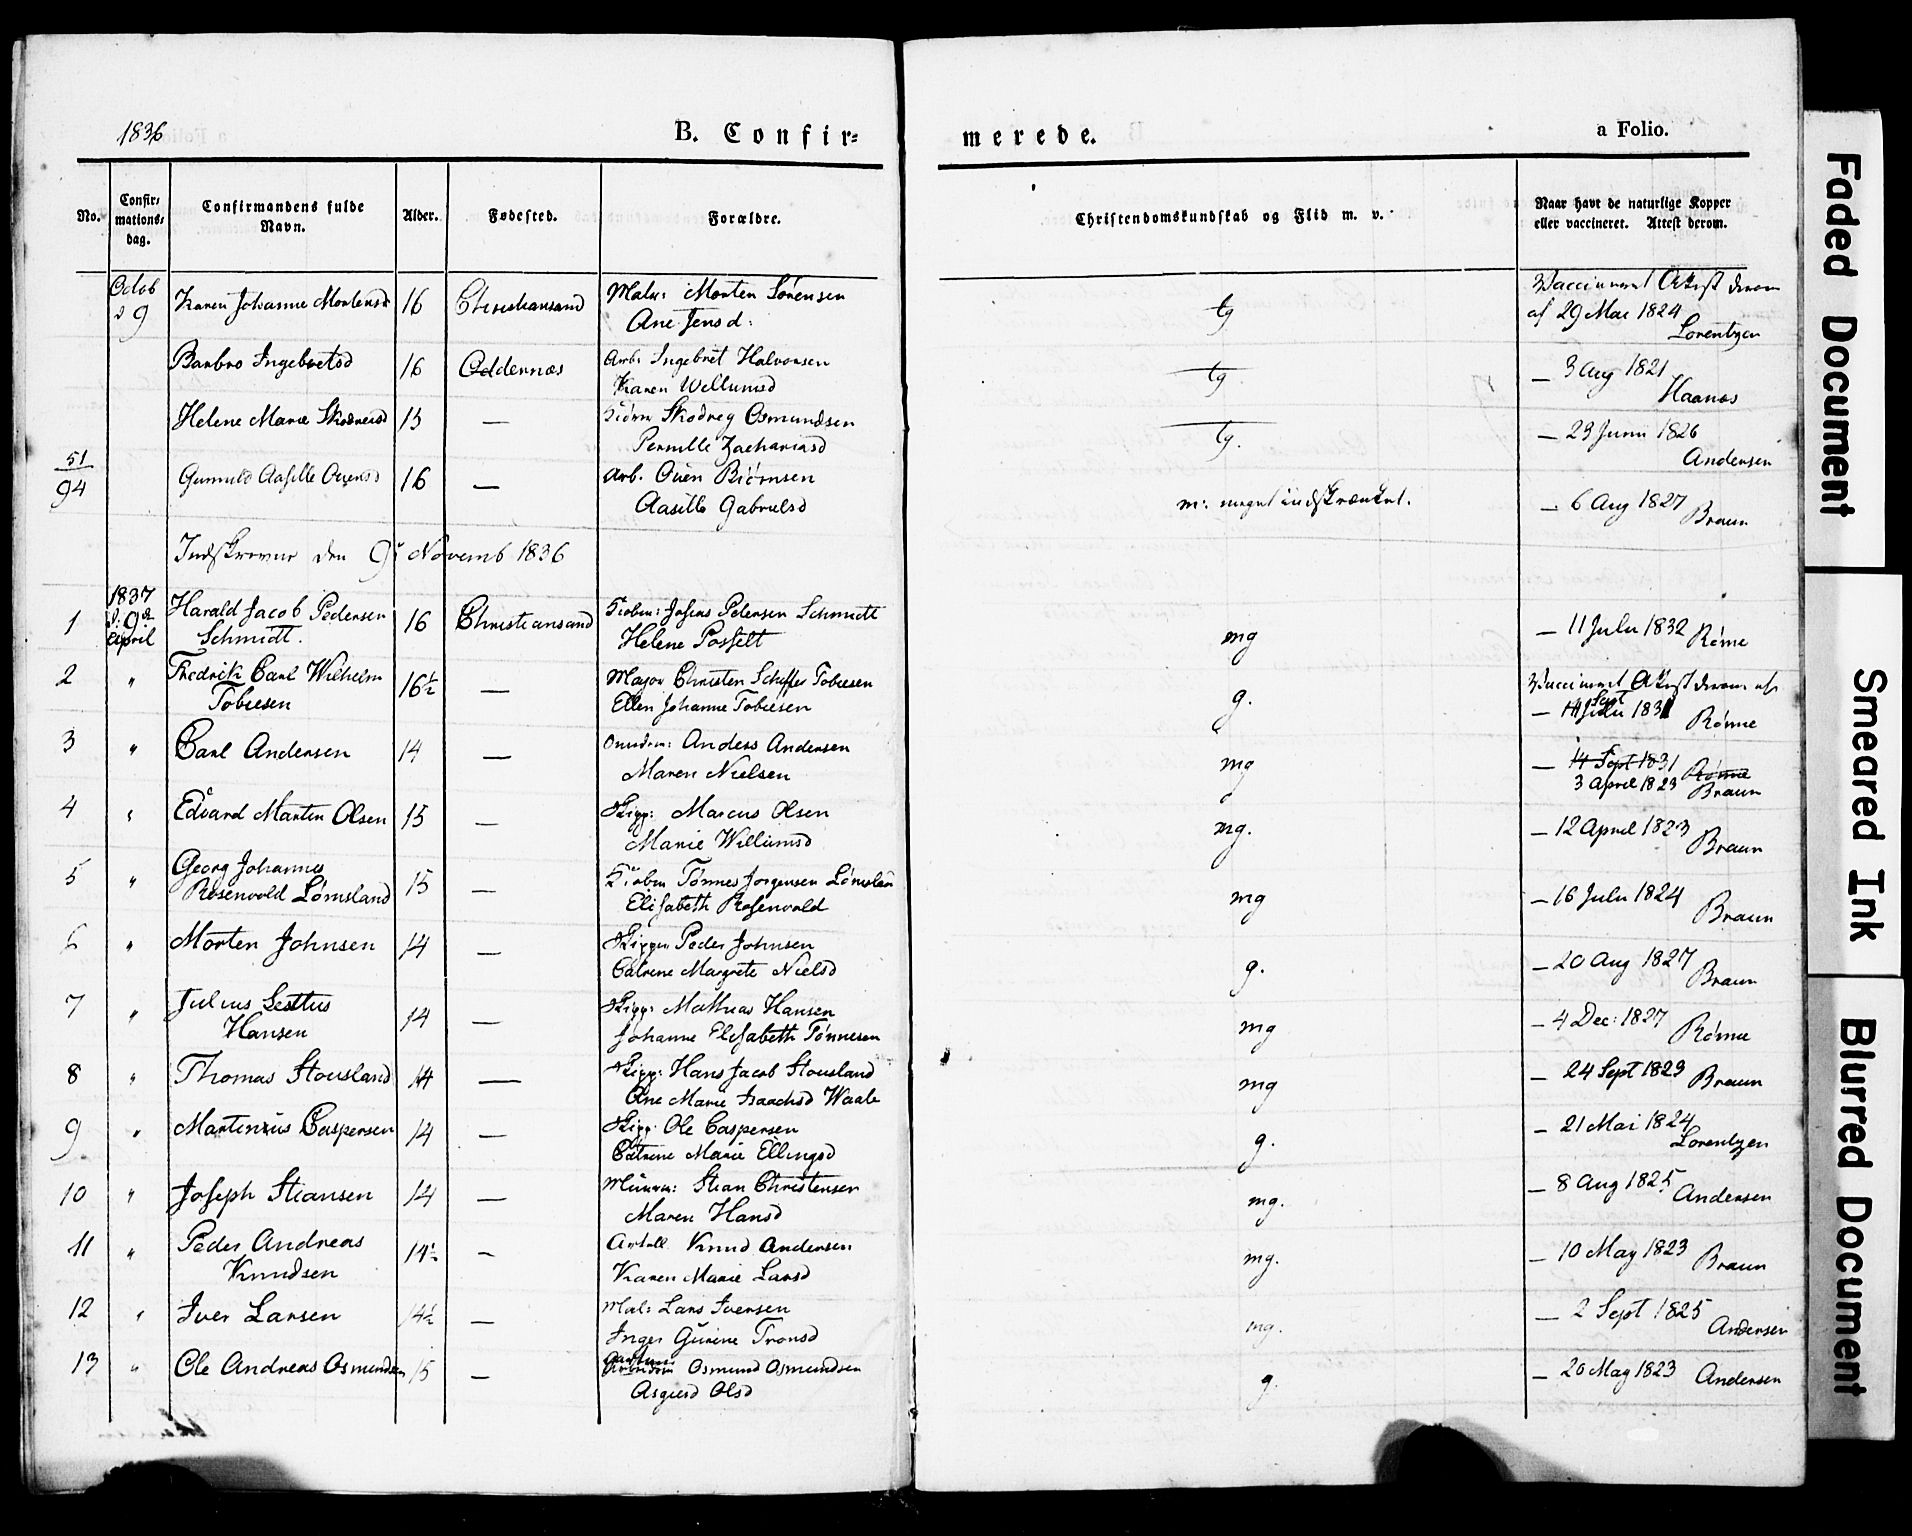 1836 B. Confir= merede. a Folio.
No. Confir= mations= dag. Confirmandens fulde Navn. Alder. Fødested. Forældre. Christendomskundskab og Flid m. v. Naar havt de naturlige Kopper eller vaccineret. Attest derom.
Octob d 9 Karen Johanne Mortensd 16 Christiansand Matr: Morten Sørensen tg Vaccineret Attest derom
Ane Jensd: af 29 Mai 1824 Lorentzen
Barbro Ingebretsd 16 Oddernæs Arb: Ingebret Halvorsen tg. — 3 Aug 1821
Karen Willumsd Haanæs
Helene Marie 15 — Osmundsen tg. — 23 Juni 1826
Pernille Zachariasd Andersen
51
94 Gunnild Aasille 16 — Arb. Ouen Biørnsen m: meget indskrænket. — 6 Aug 1827 Braun
Aasille Gabrielsd
Indskrevne den 9de Novemb 1836
1 1837 d: 9de April Harald Jacob Pedersen 16 Christiansand Kiøbm: Josias Petersen Schmidt mg — 11 Julii 1832 Røme
Schmidt. Helene Posselt
2 " Fredrik Carl Wilhelm 16½ — Major Christen Tobiesen g. Vaccineret Attest derom af
Tobiesen Ellen Johanne Tobiesen — 14 Sept 1831 Rømе
3 " Carl Andersen 14 — Anders Andersen mg — 14 Sept 1831 Rømе
Maren Nielsen 3 April 1823 Braun
4 " Edvard Martin Olsen 15 — Skipp: Marcus Olsen mg. — 12 April 1823
Marie Willumsd Braun
5 " Georg Johannes 15 — Kiøbm Tønnes Jørgensen mg — 16 Julii 1824
Rosenvold Lømsland Elisabeth Rosenvold Braun
6 " Morten Johnsen 14 — Skipper Peder Johnsen g. — 20 Aug 1827
Catrine Margrete Nielsd Braun
7 " Julius 14 — Skipp: Mathias Hansen mg — 4 Dec: 1827
Hansen Johanne Elisabeth Tønnesen Rømе
8 " Thomas Stousland 14 — Skipp: Hans Jacob Stousland mg — 24 Sept 1823 Braun
Ane Marie Isachsd Waale
9 " Martinius Caspersen 14 — Skipp: Ole Caspersen g. — 21 Mai 1824
Catrine Marie Ellingsd Lorentzen
10 " Joseph Stiansen 14 — Muurm: Stian Christensen mg. — 8 Aug 1825 Andersen
Maren Hansd
11 " Peder Andreas 14½ — Knud Andersen mg. — 10 May 1823 Braun
Knudsen Karen Marie Larsd
12 " Iver Larsen 14½ — Mat: Lars Iversen mg. — 2 Sept 1825
Inger Gurine Tronsd Andersen
13 " Ole Andreas Osmundsen 15 — Osmund Osmundsen g. — 20 May 1823 Andersen
Olsd
Faded Document
Smeared Ink
Blurred Document